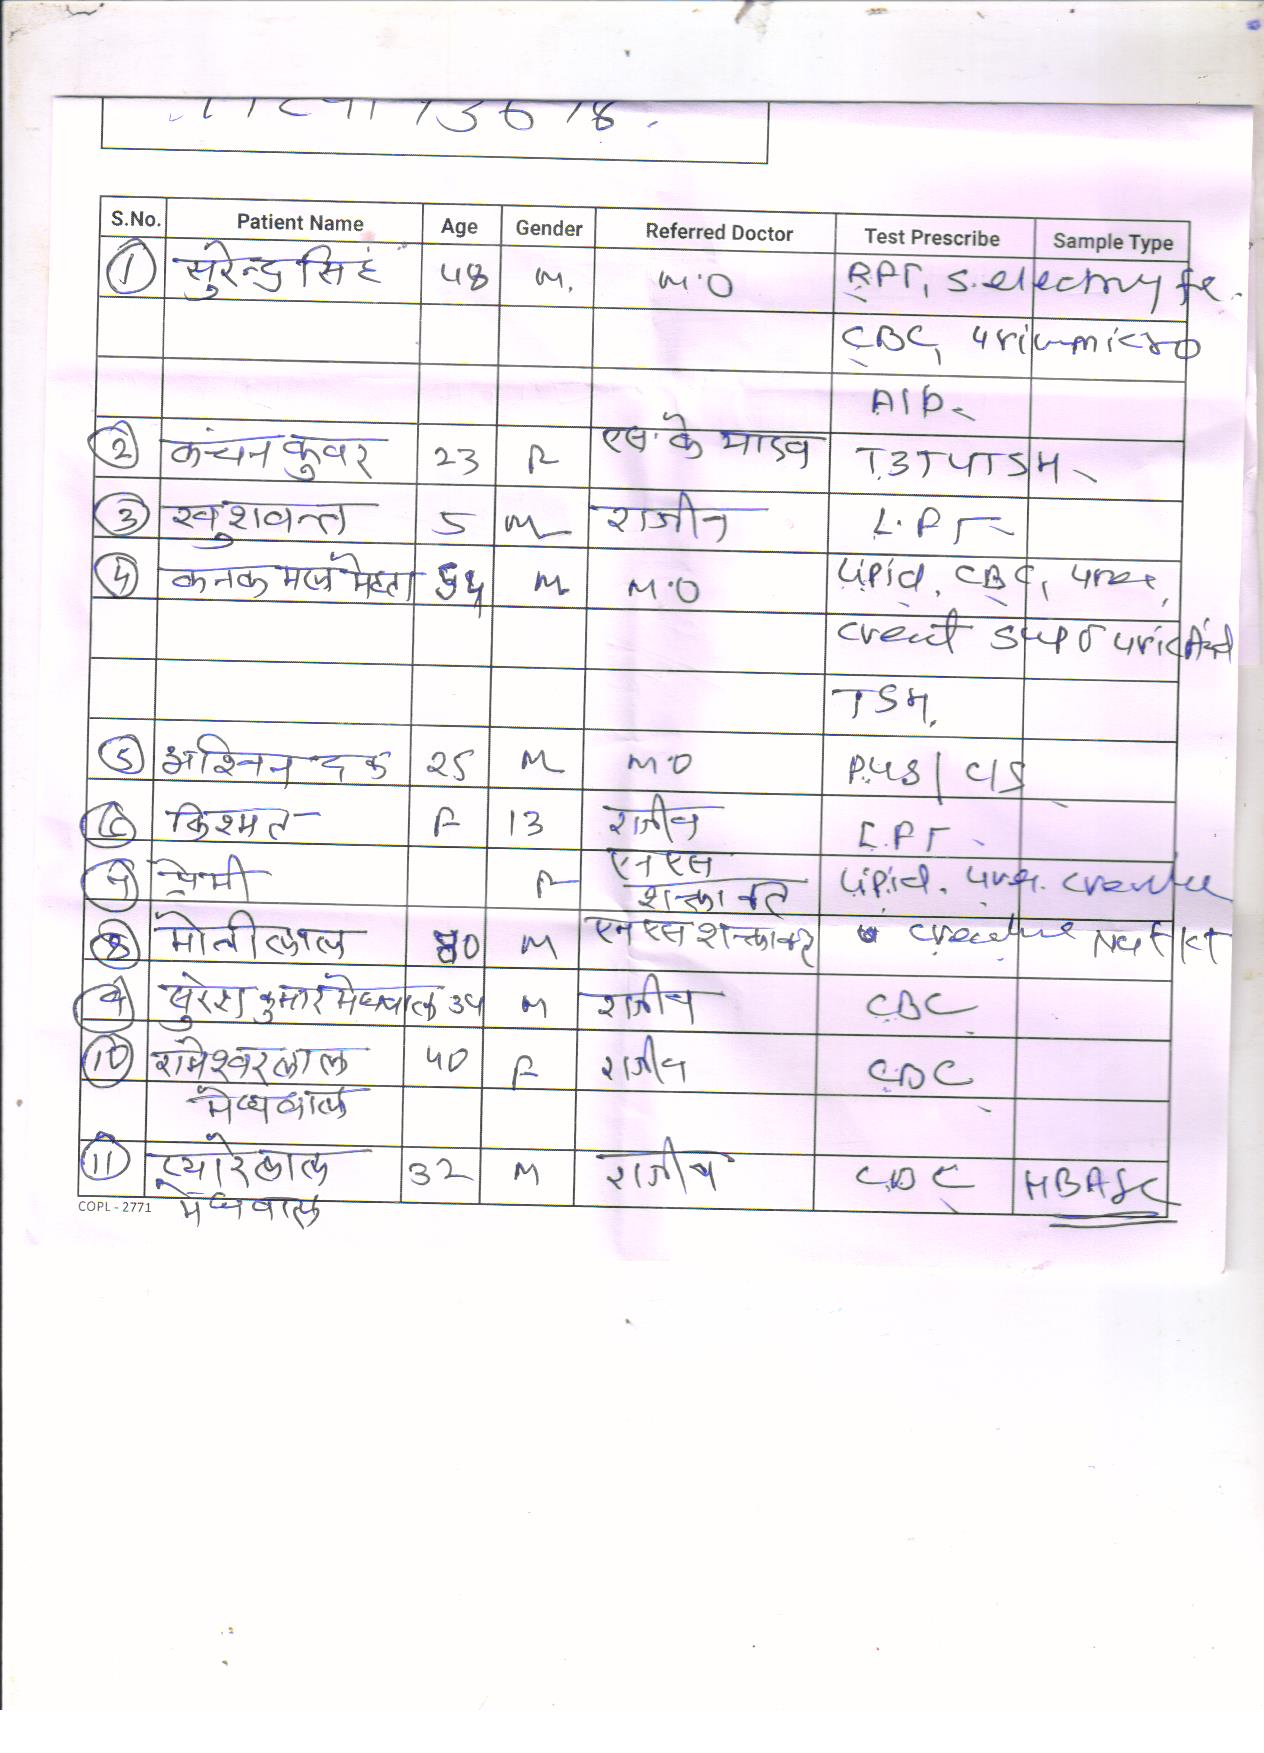 S.No. Patient Name Age Gender Referred Doctor Test Prescribe Sample Type
1 सुरेन्द्र सिहं 48 M. M.O RFT, S.electroy fe.
CBC, uriumicro
Alb.
2 कंचन कुवर 23 F एस. के यादव T3T4TSH
3 खुशवन्त 5 M राजीव L.FT
4 कनक मल मेहता 54 M M.O Lipid. CBC, urea,
creat uricAcid
TSH,
5 25 M M.O PUS/C/S
6 किश्मत F 13 राजीव L.FT
7 प्रेमी F एन एस
Lipid. urea.
8 मोतीलाल 80 M एन एस
9 सुरेश कुमार मेघवाल 34 M राजीव CBC
10 रामेश्वरलाल 40 F राजीव CBC
मेघवाल
11 प्यारेलाल 32 M राजीव CBC
COPL - 2771 मेघवाल